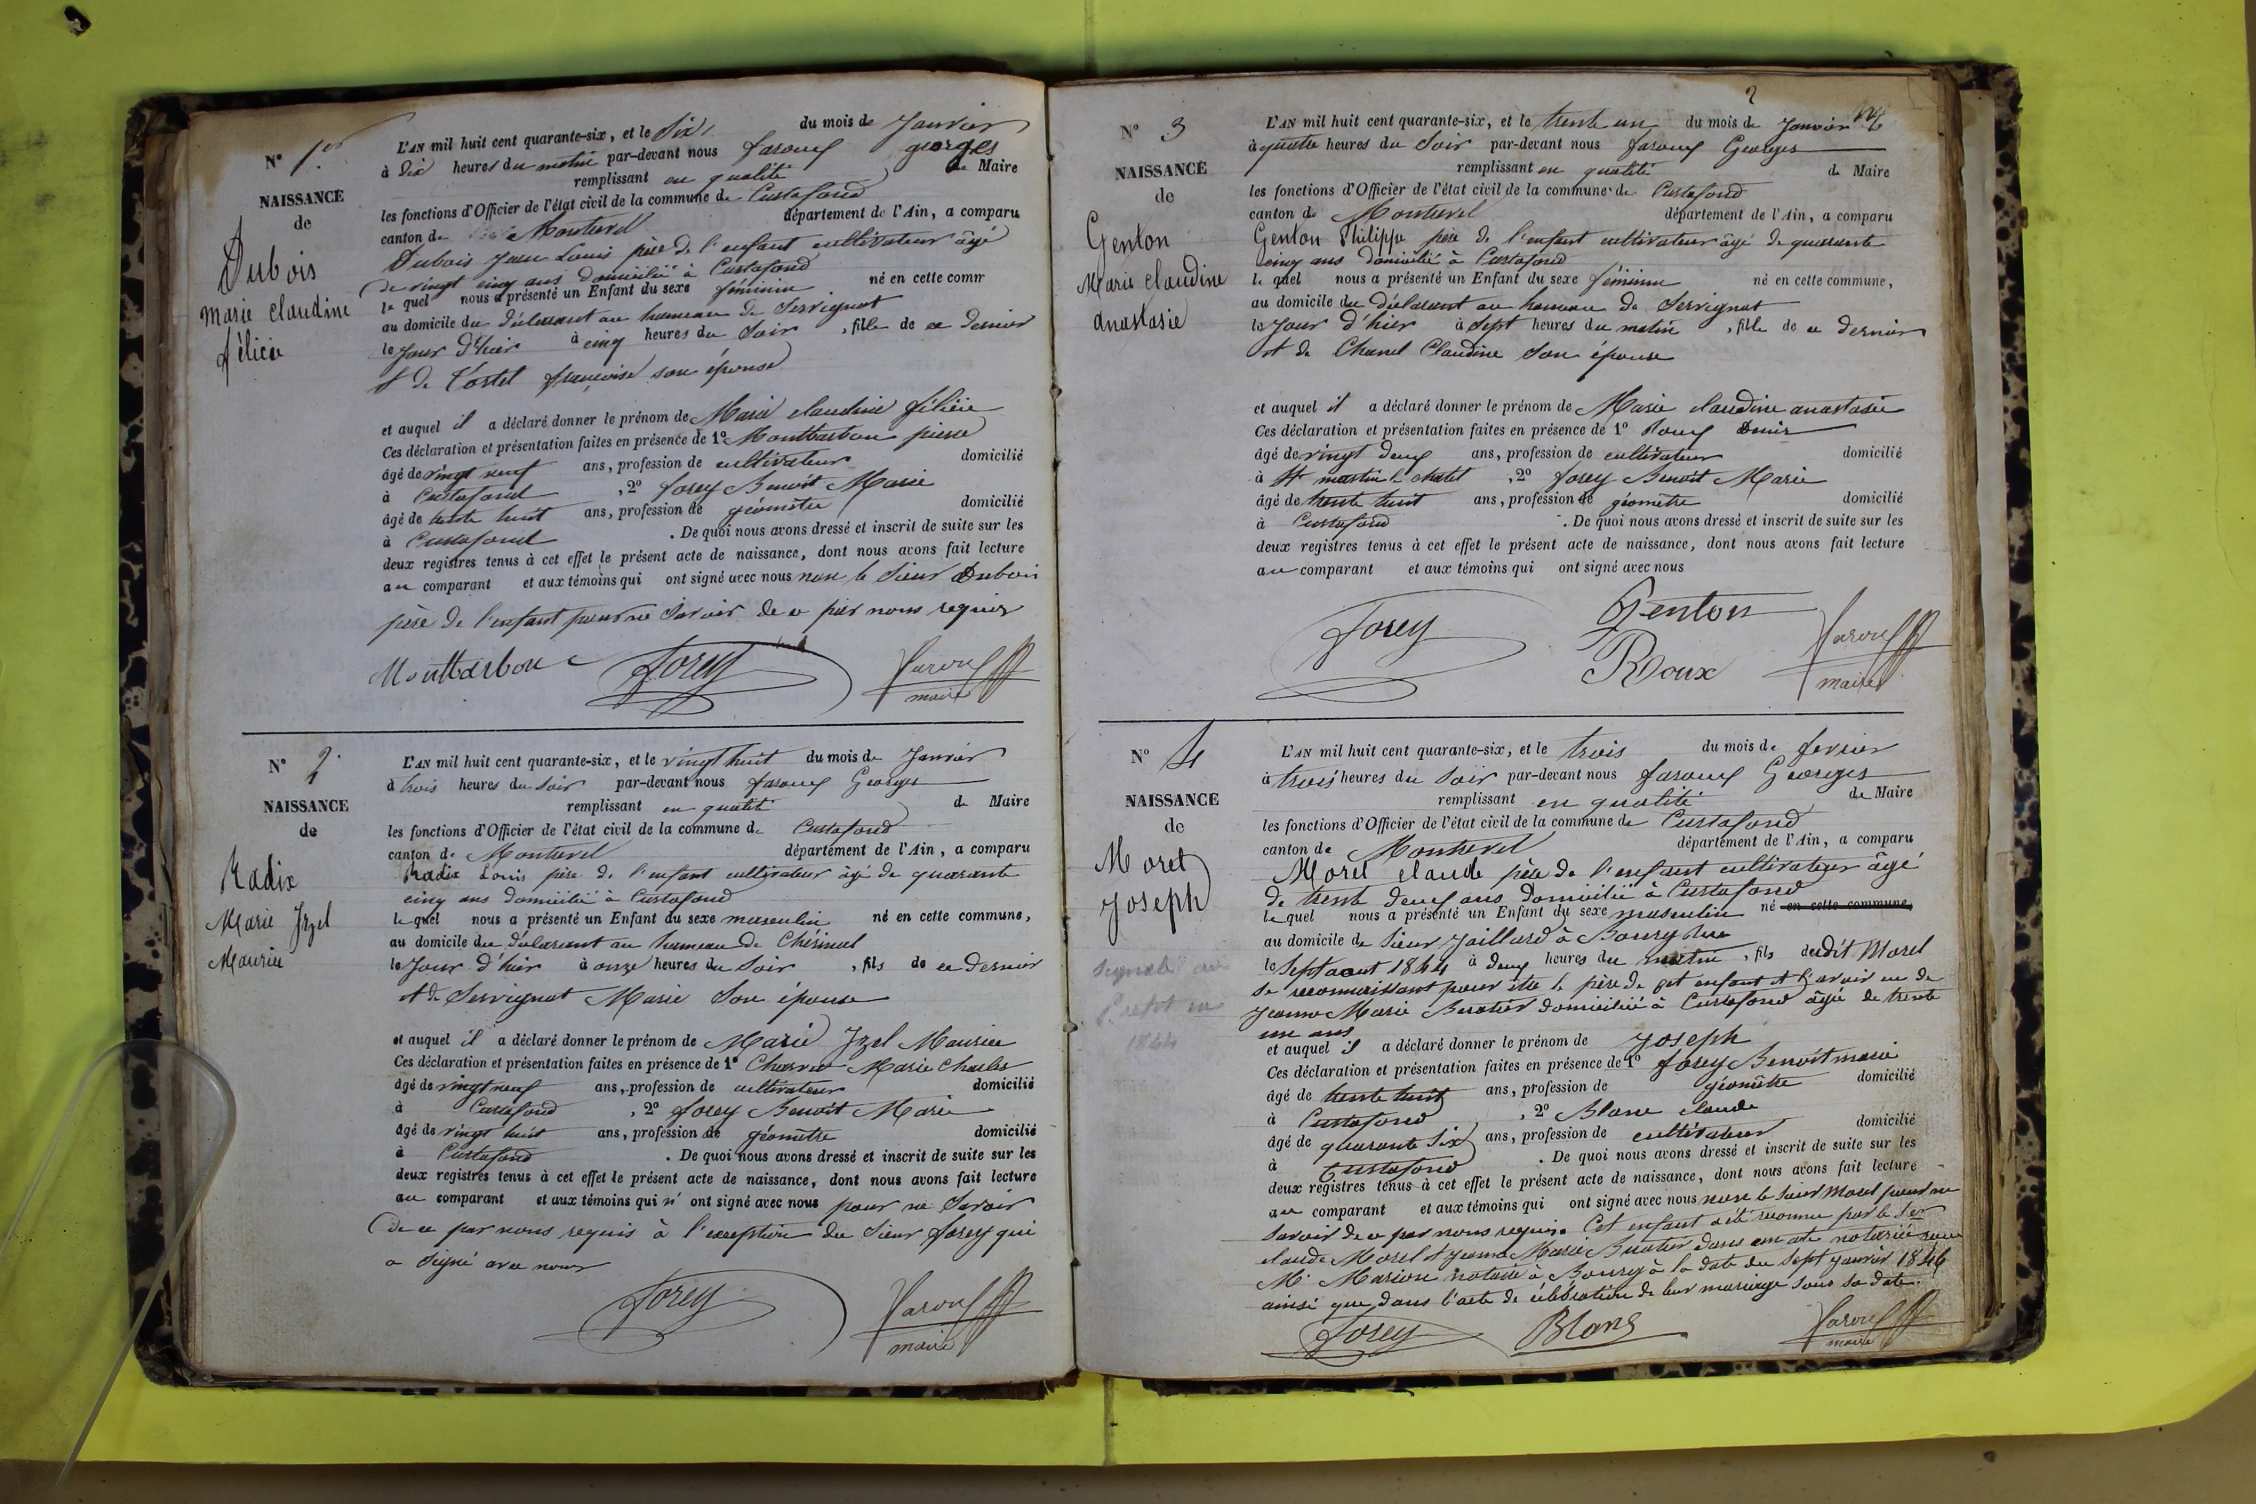 N° 1er
NAISSANCE
de
Dubois
Marie claudine
félicie
L'AN mil huit cent quarante-six, et le Six du mois de Janvier
à dix heures du matin par-devant nous faroux georges
remplissant en qualité de Maire
les fonctions d'Officier de l'état civil de la commune de Curtafond
canton de Montrevel département de l'Ain, a comparu
Dubois Jean Louis père de l'enfant cultivateur âgé
de vingt cinq ans domicilié à Curtafond
le quel nous a présenté un Enfant du sexe féminin né en cette comm
au domicile du déclarant au hameau de Servignat
le jour d'hier à cinq heures du Soir, fille de ce dernier
et de Tortel françoise son épouse
et auquel il a déclaré donner le prénom de Marie claudine félicie
Ces déclaration et présentation faites en présence de 1° Montbarbon pierre
âgé de vingt neuf ans, profession de cultivateur domicilié
à Curtafond, 2° forey Benoit Marie
âgé de trente huit ans, profession de géomètre domicilié
à Curtafond. De quoi nous avons dressé et inscrit de suite sur les
deux registres tenus à cet effet le présent acte de naissance, dont nous avons fait lecture
au comparant et aux témoins qui ont signé avec nous non le Sieur Dubois
père de l'enfant pour ne Savoir de ce par nous requis
Montbarbon forey faroux
maire
N° 2
NAISSANCE
de
Radix
Marie Jzel
Maurice
L'AN mil huit cent quarante-six, et le vingt huit du mois de Janvier
à trois heures du Soir par-devant nous faroux Georges
remplissant en qualité de Maire
les fonctions d'Officier de l'état civil de la commune de Curtafond
canton de Montrevel département de l'Ain, a comparu
Radix Louis père de l'enfant cultivateur âgé de quarante
cinq ans domicilié à Curtafond
le quel nous a présenté un Enfant du sexe masculin né en cette commune,
au domicile du déclarant au hameau de Chérinal
le Jour d'hier à onze heures du Soir, fils de ce dernier
et de Servignat Marie Son épouse
et auquel il a déclaré donner le prénom de Marie Jzel Maurice
Ces déclaration et présentation faites en présence de 1° Marie Charles
âgé de vingt neuf ans, profession de cultivateur domicilié
à Curtafond, 2° forey Benoit Marie
âgé de vingt huit ans, profession de géomètre domicilié
à Curtafond. De quoi nous avons dressé et inscrit de suite sur les
deux registres tenus à cet effet le présent acte de naissance, dont nous avons fait lecture
au comparant et aux témoins qui n' ont signé avec nous pour ne Savoir
de ce par nous requis à l'exception du Sieur forey qui
a Signé avec nous
forey faroux
maire
2
N° 3
NAISSANCE
de
Genton
Marie claudine
anastasie
L'AN mil huit cent quarante-six, et le trente un du mois de Janvier
à quatre heures du Soir par-devant nous faroux Georges
remplissant en qualité de Maire
les fonctions d'Officier de l'état civil de la commune de Curtafond
canton de Montrevel département de l'Ain, a comparu
Genton Philippe père de l'enfant cultivateur âgé de quarante
cinq ans domicilié à Curtafond
le quel nous a présenté un Enfant du sexe féminin né en cette commune,
au domicile du déclarant au hameau de Servignat
le Jour d'hier à Sept heures du matin, fille de ce dernier
et de Chanel Claudine Son épouse
et auquel il a déclaré donner le prénom de Marie claudine anastasie
Ces déclaration et présentation faites en présence de 1° Roux Denis
âgé de vingt deux ans, profession de cultivateur domicilié
à St martin le chatel, 2° forey Benoit Marie
âgé de trente huit ans, profession de géomètre domicilié
à Curtafond. De quoi nous avons dressé et inscrit de suite sur les
deux registres tenus à cet effet le présent acte de naissance, dont nous avons fait lecture
au comparant et aux témoins qui ont signé avec nous
forey Genton faroux
Roux maire
N° 4
NAISSANCE
de
Morel
Joseph
1844
L'AN mil huit cent quarante-six, et le trois du mois de fevrier
à trois heures du Soir par-devant nous faroux Georges
remplissant en qualité de Maire
les fonctions d'Officier de l'état civil de la commune de Curtafond
canton de Montrevel département de l'Ain, a comparu
Morel claude père de l'enfant cultivateur âgé
de trente deux ans domicilié à Curtafond
le quel nous a présenté un Enfant du sexe masculin né en cette commune,
au domicile de Sieur Jaillard à Bourg
le Sept aout 1844 à deux heures du matin, fils dudit Morel
se reconnaissant pour être le père de cet enfant et l'avoir eu de
Jeanne Marie Buatier domiciliée à Curtafond âgée de trente
un ans
et auquel il a déclaré donner le prénom de Joseph
Ces déclaration et présentation faites en présence de 1° forey Benoit marie
âgé de trente huit ans, profession de géomètre domicilié
à Curtafond, 2° Blanc claude
âgé de quarante Six ans, profession de cultivateur domicilié
à Curtafond. De quoi nous avons dressé et inscrit de suite sur les
deux registres tenus à cet effet le présent acte de naissance, dont nous avons fait lecture
au comparant et aux témoins qui ont signé avec nous non le Sieur Morel pour ne
Savoir de ce par nous requis. Cet enfant a été reconnu par le Ser
claude Morel et Jeanne Marie Buatier dans un acte notarié
Me Marion notaire à Bourg à la date du Sept Janvier 1846
ainsi que dans l'acte de célébration de leur mariage sous sa date.
forey Blanc faroux
maire